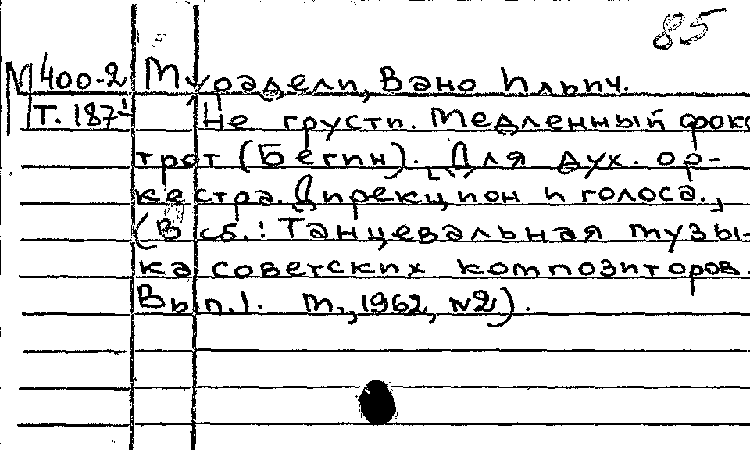 85
М 400-2 Мурадели, Вано Ильич.
Т. 187¹ Не грусти. Медленный фокс
трот (Бегин). Для дух. ор-
кестра. Дирекцион и голоса.,
(В сб.: Танцевальная музы-
ка советских композиторов.
Вып.1. М., 1962, №2).